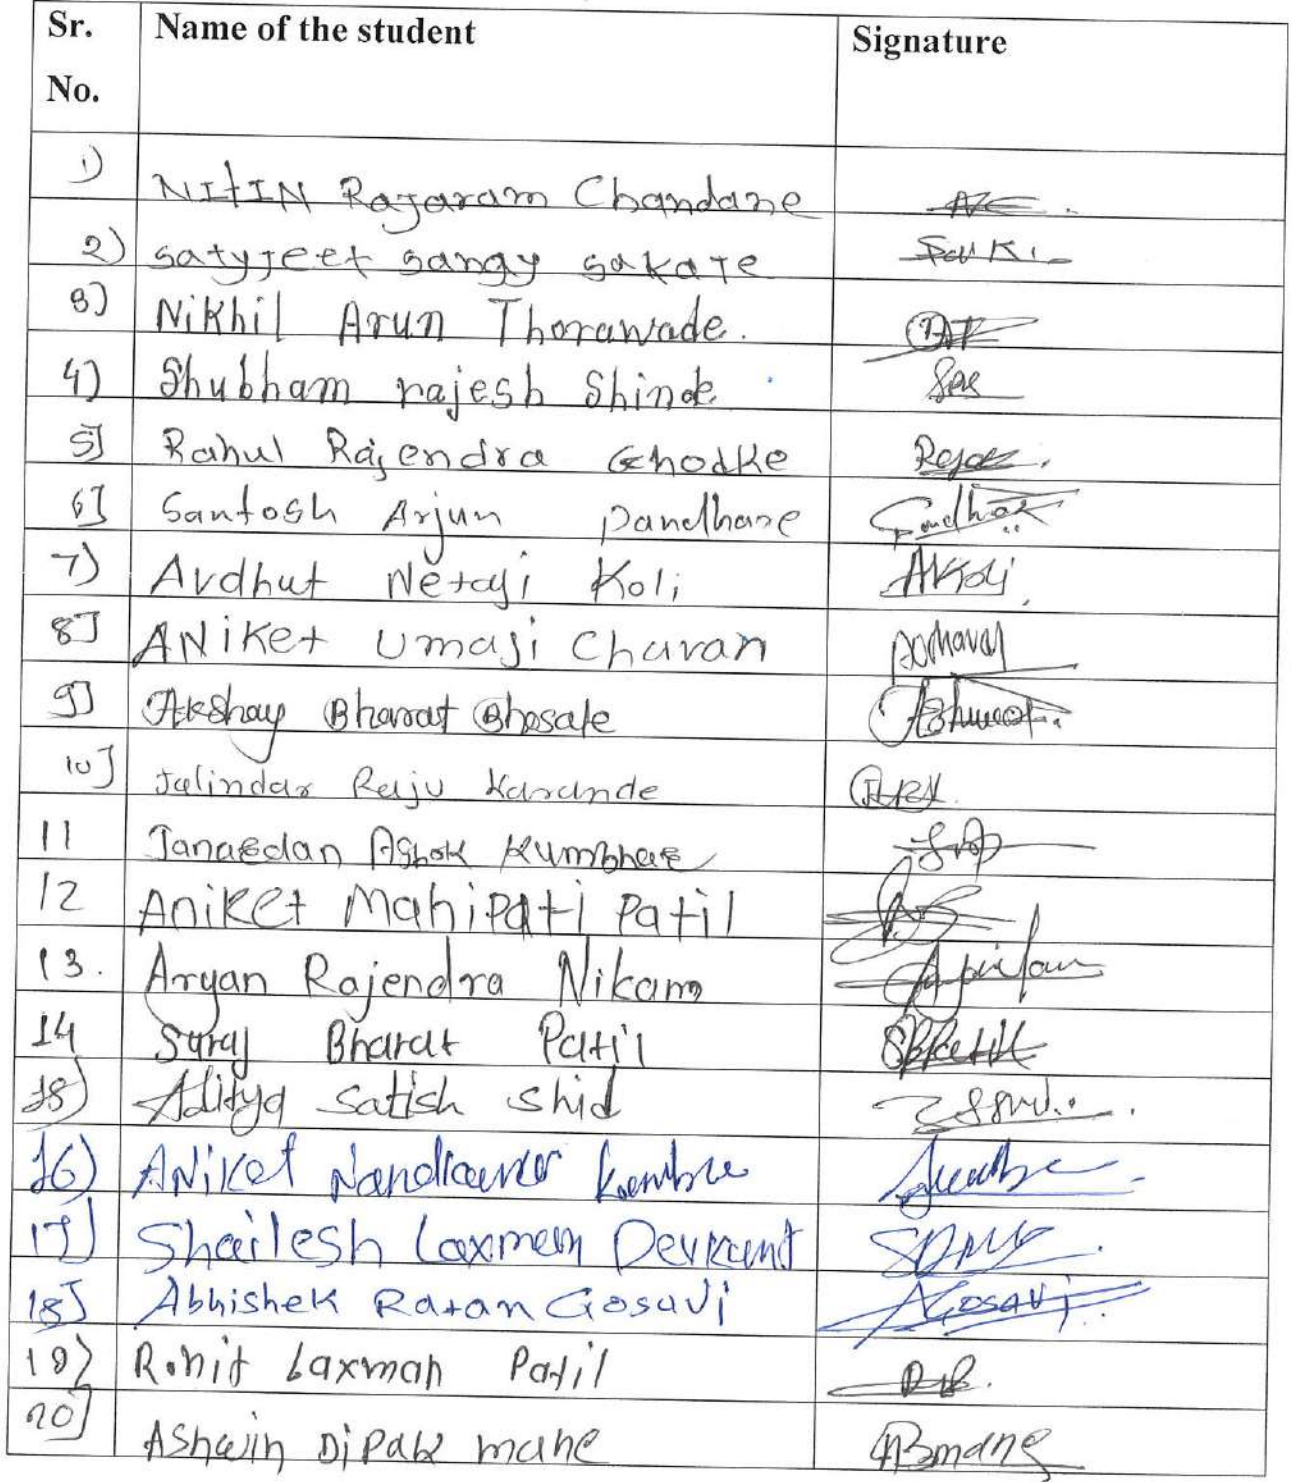 Sr. No. Name of the student Signature
1) NItIN Rajaram Chandane
2) satyjeet sangy sakate
3) Nikhil Arun Thorawade.
4) Shubham rajesh Shinde
5] Rahul Rajendra Ghodke
6] Santosh Arjun pandhare
7) Avdhut Netaji Koli AKoli
8] ANiket Umaji Chavan AUChavan
9] Akshay Bharat Bhosale
10] Jalindar Raju Karande
11 Janardan Ashok Kumbhar
12 Aniket Mahipati Patil
13. Aryan Rajendra Nikam
14 Suraj Bharat Patil SBPatil
15) Aditya Satish Shid
16) ANiket Nandkumar Kamble
17] Shailesh Laxman Devkant
18] Abhishek Ratan Gosavi AGosavi
19) Rohit Laxman Patil
20] Ashwin Dipak mane